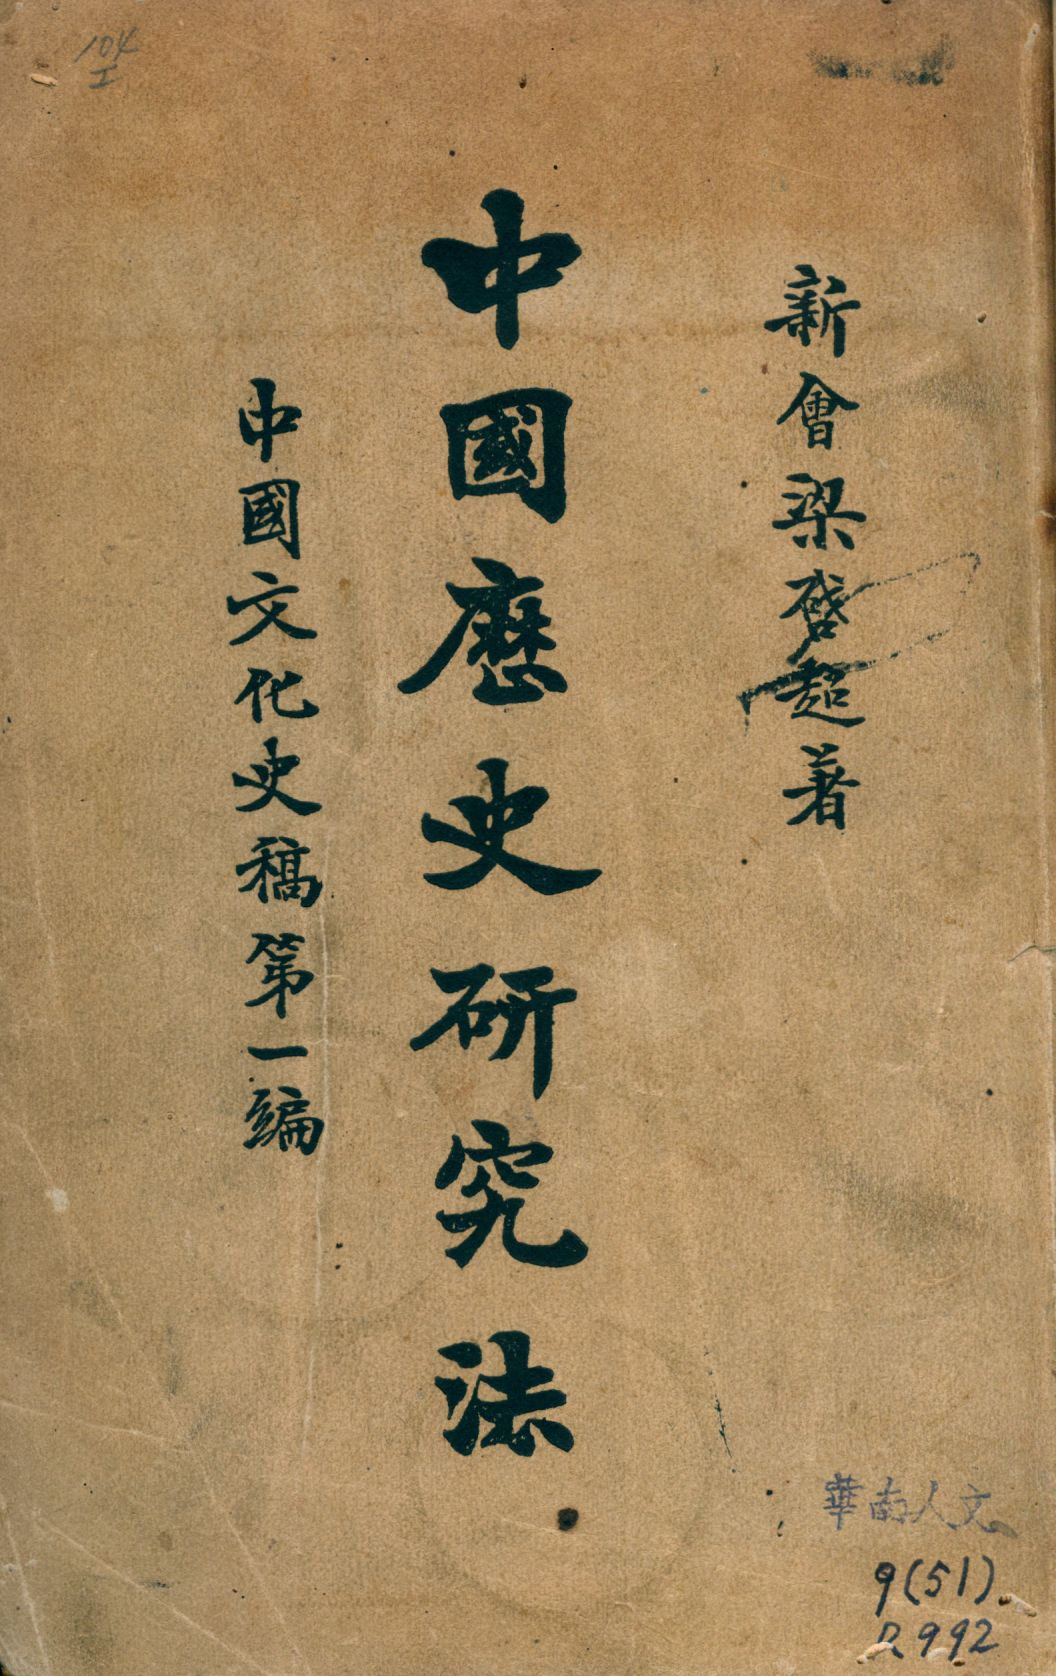 新會梁啓超著
中國歷史研究法
中國文化史稿第一編
104
I
華南人文
9(51)
R992